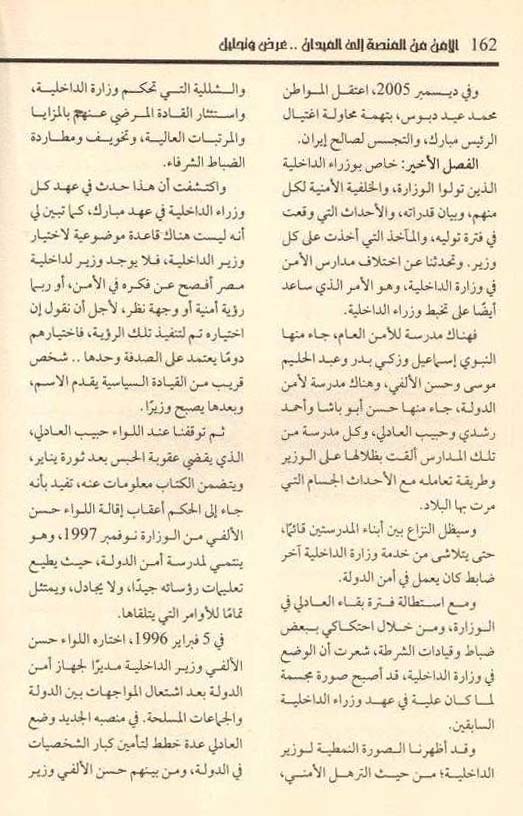 162 الأمن من المنصة إلى الميدان .. عرض وتحليل
وفي ديسمبر 2005، اعتقل المواطن
محمد عيد دبوس، بتهمة محاولة اغتيال
الرئيس مبارك، والتجسس لصالح إيران.
الفصل الأخير: خاص بوزراء الداخلية
الذين تولوا الوزارة، والخلفية الأمنية لكل
منهم، وبيان قدراته، والأحداث التي وقعت
في فترة توليه، والمآخذ التي أخذت على كل
وزير. وتحدثنا عن اختلاف مدارس الأمن
في وزارة الداخلية، وهو الأمر الذي ساعد
أيضًا على تخبط وزراء الداخلية.
فهناك مدرسة للأمن العام، جاء منها
النبوي إسماعيل وزكي بدر وعبد الحليم
موسى وحسن الألفي، وهناك مدرسة لأمن
الدولة، جاء منها حسن أبو باشا وأحمد
رشدي وحبيب العادلي، وكل مدرسة من
تلك المدارس ألقت بظلالها على الوزير
وطريقة تعامله مع الأحداث الجسام التي
مرت بها البلاد.
وسيظل النزاع بين أبناء المدرستين قائمًا،
حتى يتلاشى من خدمة وزارة الداخلية آخر
ضابط كان يعمل في أمن الدولة.
ومع استطالة فترة بقاء العادلي في
الوزارة، ومن خلال احتكاكي ببعض
ضباط وقيادات الشرطة، شعرت أن الوضع
في وزارة الداخلية، قد أصبح صورة مجسمة
لما كان علية في عهد وزراء الداخلية
السابقين.
وقد أظهرنا الصورة النمطية لوزير
الداخلية؛ من حيث الترهل الأمني،
والشللية التي تحكم وزارة الداخلية،
واستئثار القادة المرضي عنهم بالمزايا
والمرتبات العالية، وتخويف ومطاردة
الضباط الشرفاء.
واكتشفت أن هذا حدث في عهد كل
وزراء الداخلية في عهد مبارك، كما تبين لي
أنه ليست هناك قاعدة موضوعية لاختيار
وزير الداخلية، فلا يوجد وزير لداخلية
مصر أفصح عن فكره في الأمن، أو ربما
رؤية أمنية أو وجهة نظر، لأجل أن نقول إن
اختياره تم لتنفيذ تلك الرؤية، فاختيارهم
دومًا يعتمد على الصدفة وحدها .. شخص
قريب من القيادة السياسية يقدم الاسم،
وبعدها يصبح وزيرًا.
ثم توقفنا عند اللواء حبيب العادلي،
الذي يقضي عقوبة الحبس بعد ثورة يناير،
ويتضمن الكتاب معلومات عنه، تفيد بأنه
جاء إلى الحكم أعقاب إقالة اللواء حسن
الألفي من الوزارة نوفمبر 1997، وهو
ينتمي لمدرسة أمن الدولة، حيث يطيع
تعليمات رؤسائه جيدًا، ولا يجادل، ويمتثل
تمامًا للأوامر التي يتلقاها.
في 5 فبراير 1996، اختاره اللواء حسن
الألفي وزير الداخلية مديرًا لجهاز أمن
الدولة بعد اشتعال المواجهات بين الدولة
والجماعات المسلحة. في منصبه الجديد وضع
العادلي عدة خطط لتأمين كبار الشخصيات
في الدولة، ومن بينهم حسن الألفي وزير